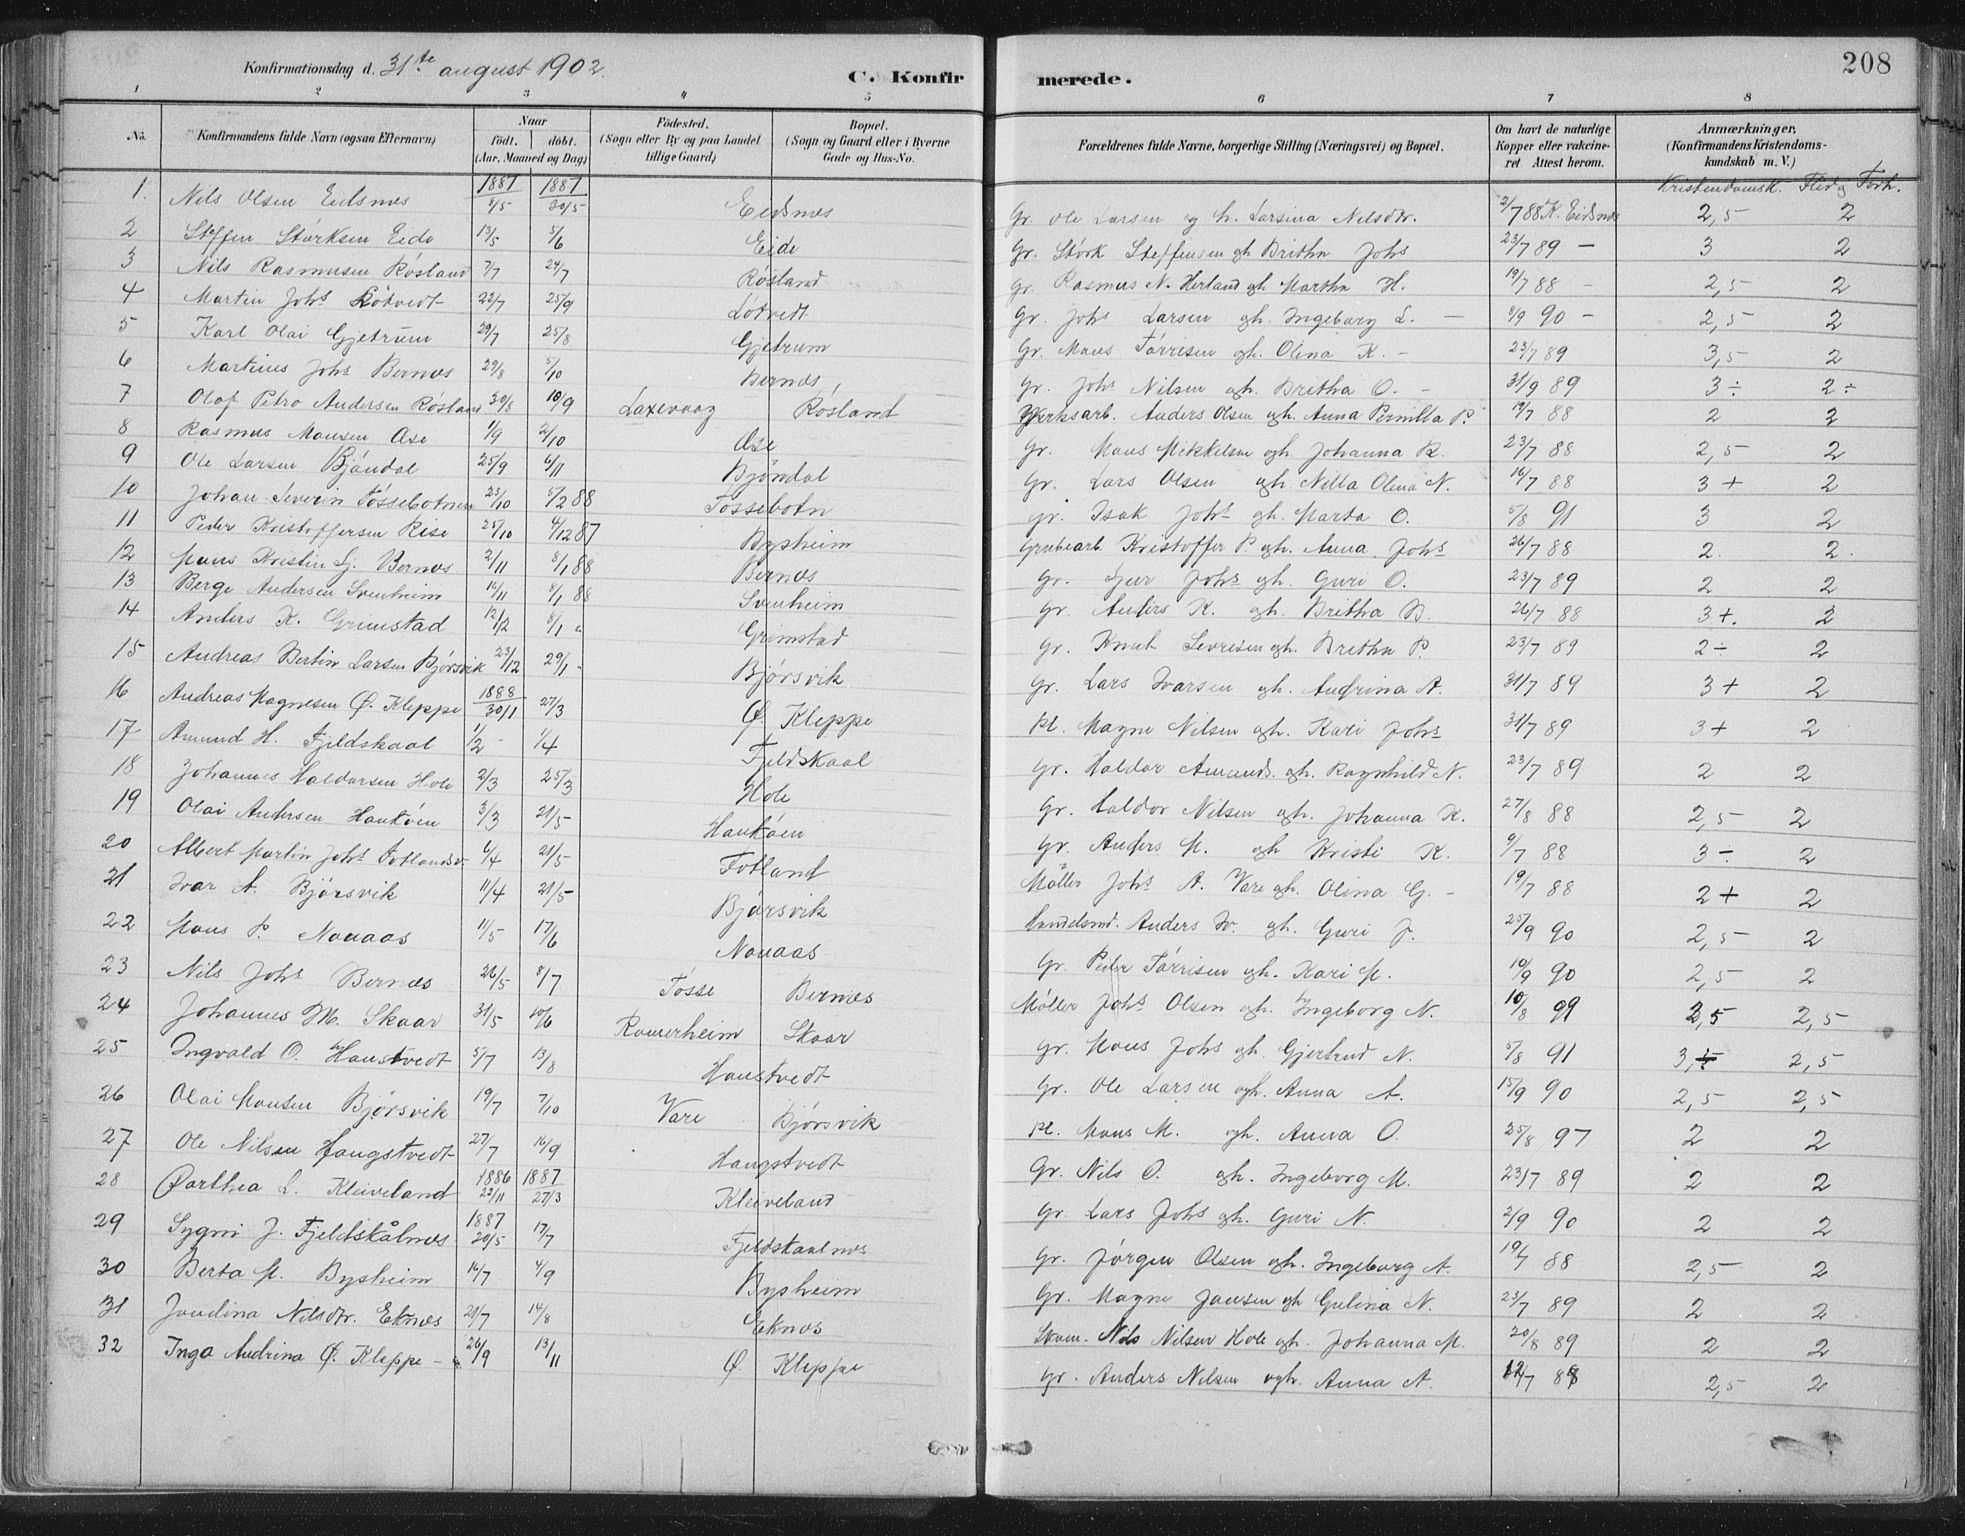 Konfirmationsdag d. 31te august 1902.
C. Konfirmerede.
208
1 2 3 4 5 6 7 8
No. Konfirmandens fulde Navn (ogsaa Efternavn) Naar födt. döbt. (Aar, Maaned og Dag) Födested. (Sogn eller By og paa Landet tillige Gaard) Bopæl. (Sogn og Gaard eller i Byerne Gade og Hus-No. Forældrenes fulde Navne, borgerlige Stilling (Næringsvei) og Bopæl. Om havt de naturlige Kopper eller vakcineret Attest herom. Anmærkninger, (Konfirmandens Kristendomskundskab m. V.)
Kristendomsk. Flid og Forh.
1. Nils Olsen Eidsnes 1887 8/5 1887 30/5 Eidsnes Gr. Ole Larsen og h. Larsina Nilsdtr. 2/7 88 K. Eidsnes 2,5 2
2 Steffen Størksen Eide 13/5 5/6 Eide Gr. Størk Steffensen gh Britha Johs 23/7 89 - 3 2
3 Nils Rasmusen Røsland 7/7 24/7 Røsland Gr. Rasmus N. Herland gh Martha H. 19/7 88 - 2,5 2
4 Martin Johs Løtvedt 22/7 25/9 Løtvedt Gr. Johs Larsen gh. Ingeborg L. - 8/9 90 - 2,5 2
5 Karl Olai Gjetrum 29/7 25/8 Gjetrum Gr. Mans Tørrisen gh. Olina K. - 23/7 89 3,5 2
6 Martinus Johs Bernes 29/8 5/10 Bernes Gr. Johs Nilsen gh Britha O. - 31/9 89 3 ÷ 2 ÷
7 Olaf Petro Andersen Røsland 30/8 10/9 Laxevaag Røsland Verksarb. Anders Olsen gh. Anna Pernilla P. 19/7 88 2 2
8 Rasmus Monsen Ose 1/9 2/10 Ose Gr. Mons Mikkelsen ogh Johanna R. 23/7 88 2,5 2
9 Ole Larsen Bjøndal 25/9 6/11 Bjøndal Gr. Lars Olsen ogh. Nilla Olina N. 16/7 88 3 + 2
10 Johan Severin Fossebotnen 23/10 5/2 88 Fossebotn gr. Isak Johs gh. Marta O. 5/8 91 3 2
11 Peder Kristoffersen Rise 25/10 4/12 87 Bysheim Grubearb. Kristoffer P. ogh. Anna Johs 26/7 88 2. 2.
12 Mons Kristin Sj. Bernes 2/11 8/1 88 Bernes Gr. Sjur Johs gh. Guri O. 23/7 89 2 2
13 Berge Andersen Svenheim 16/11 8/1 88 Svenheim Gr. Anders K. ogh. Britha B. 26/7 88 3+. 2
14 Anders K. Grimstad 12/12 8/1 " Grimstad Gr. Knut Sevrisen gh. Britha P. 23/7 89 2 - 2
15 Andreas Bertin Larsen Bjørsvik 23/12 29/1 - Bjørsvik Gr. Lars Ivarsen gh. Andrina A. 31/7 89 3 + 2
16 Andreas Magnesen Ø. Kleppe 1888 30/1 27/3 Ø. Kleppe Pl. Magne Nilsen gh. Kari Johs 31/7 89 3 + 2
17 Amund H. Fjeldskaal 1/2 - 1/4 Fjeldskaal Gr. Haldor Amunds. gh. Ragnhild N. 23/7 89 2 2
18 Johannes Haldorsen Hole 2/3 25/3 Hole Gr. Haldor Nilsen gh. Johanna K. 27/8 88 2,5 2
19 Olai Andersen Haukøen 3/3 21/5 Haukøen Gr. Anders M. gh Kristi K. 9/7 88 3 ÷ 2
20 Albert Martin Johs Fotlandsv. 6/4 21/5 Fotland Møller Johs A. Vare gh. Olina G. - 19/7 88 2 + 2
21 Ivar A. Bjørsvik 11/4 21/5 Bjørsvik Handelsmd. Anders Iv. gh. Guri J. 25/9 90 2,5 2
22 Mons P. Nonaas 11/5 17/6 Nonaas Gr. Peder Tørrisen gh. Kari M. 10/9 90 2,5 2
23 Nils Johs Bernes 26/5 8/7 Fosse Bernes Møller Johs Olsen gh. Ingeborg N. 10/8 99 3,5 2,5
24 Johannes M. Skaar 31/5 10/6 Romerheim Skaar Gr. Mons Johs gh. Gjertrud N. 5/8 91 3 2,5
25 Ingvald O. Haustvedt 5/7 13/8 Haustvedt Gr. Ole Larsen ogh. Anna A. 15/9 90 2,5 2,5
26 Olai Monsen Bjørsvik 19/7 7/10 Vare Bjørsvik Pl. Mons M. ogh. Anna O. 25/8 97 2 2
27 Ole Nilsen Haugstvedt 27/7 16/9 Haugstvedt Gr. Nils O. gh. Ingeborg M. 23/7 89 2 2
28 Dorthea L. Kleiveland 1886 22/11 1887 27/3 Kleiveland Gr. Lars Johs gh. Guri N. 2/9 90 2 2
29 Sygni J. Fjeldskålnes 1887 20/5 17/7 Fjeldskaalnes Gr. Jørgen Olsen ogh. Ingeborg A. 19/7 88 2,5 2
30 Berta M. Bysheim 16/7 4/9 Bysheim Gr. Magne Jansen gh Gulina N. 23/7 89 2 2
31 Jondina Nilsdtr. Eknes 21/7 14/8 Eknes Skom. Nils Nilsen Hole gh. Johanna M. 20/8 89 2 2
32 Inga Andrina Ø. Kleppe - 26/9 13/11 Ø Kleppe Gr. Anders Nilsen ogh. Anna A. 12/7 88 2,5 2